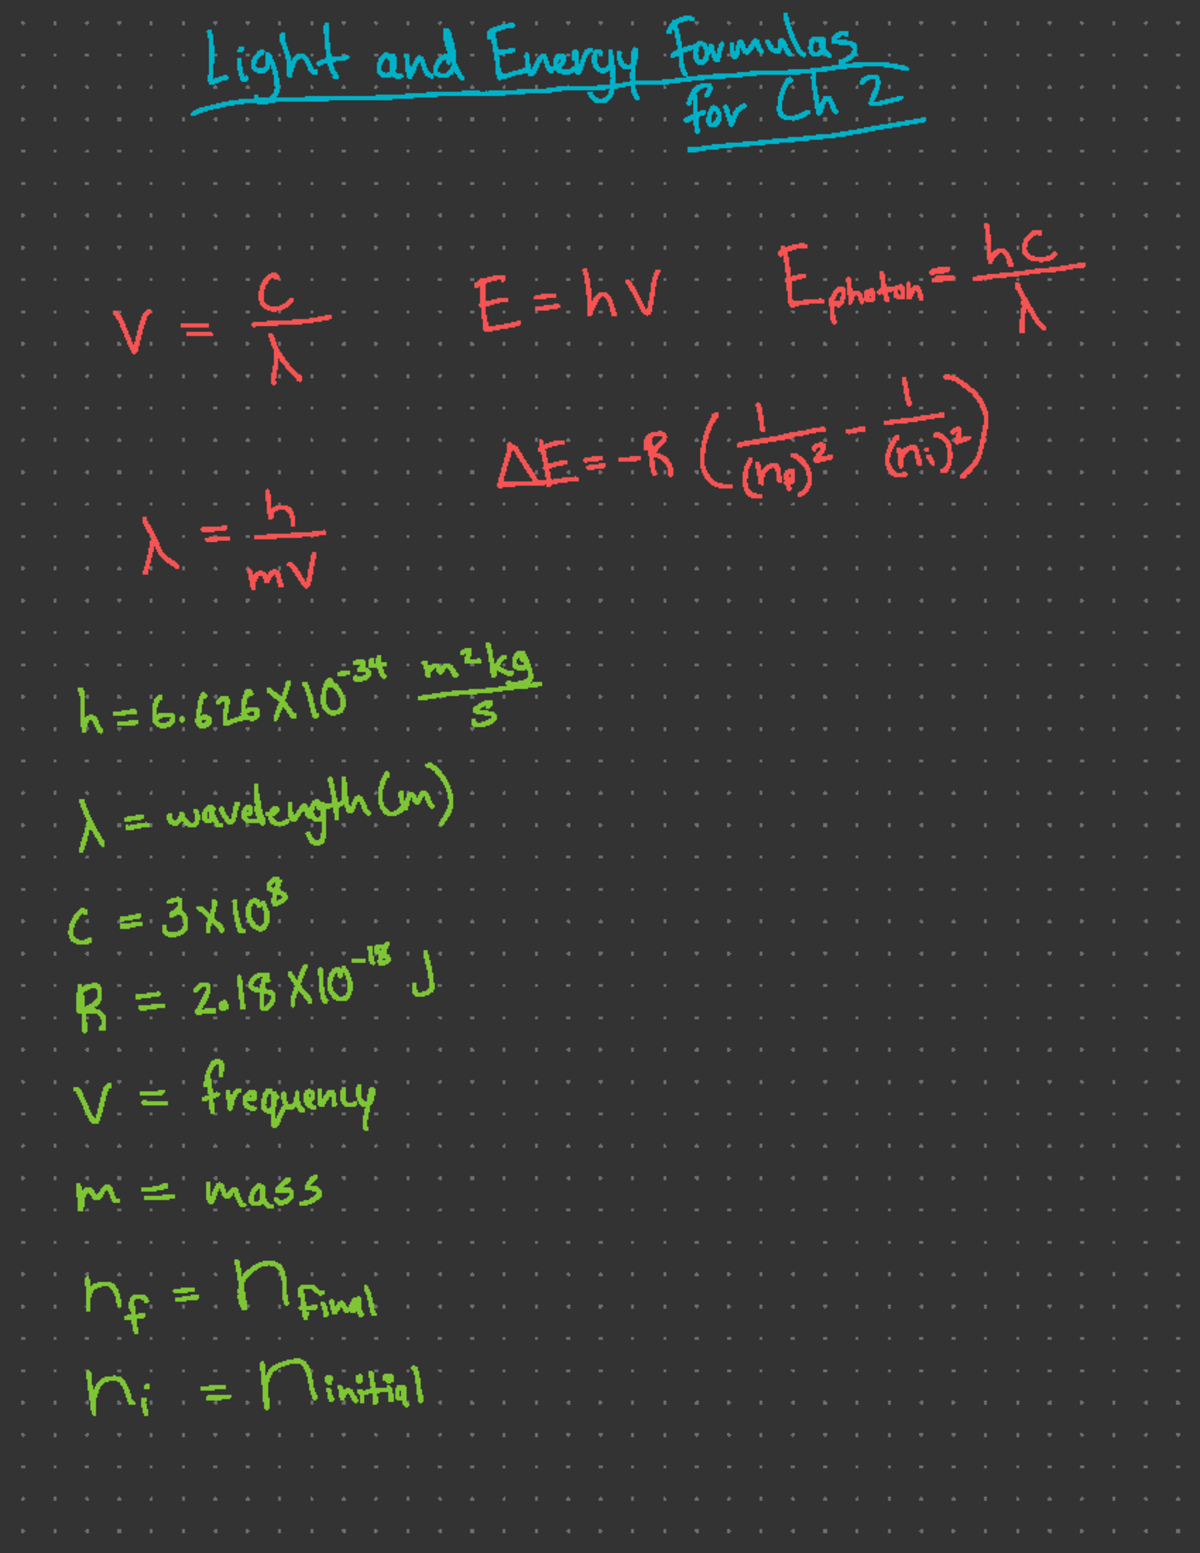 Light and Energy Formulas
for Ch 2
V = c/λ
E = hV
E photon = hc/λ
ΔE = -R (1/(nf)² - 1/(ni)²)
λ = h/mV
h = 6.626 X 10⁻³⁴ m²kg/s
λ = wavelength (m)
C = 3 X 10⁸
R = 2.18 X 10⁻¹⁸ J
V = frequency
m = mass
nf = n Final
ni = n initial